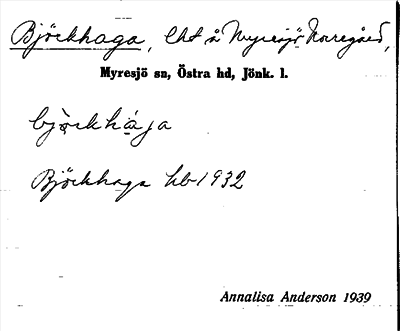 Björkhaga, lht å Myresjö Norregård,
Myresjö sn, Östra hd, Jönk. l.
bjö̀rkhá̀ja
Björkhaga hb 1932
Annalisa Anderson 1939